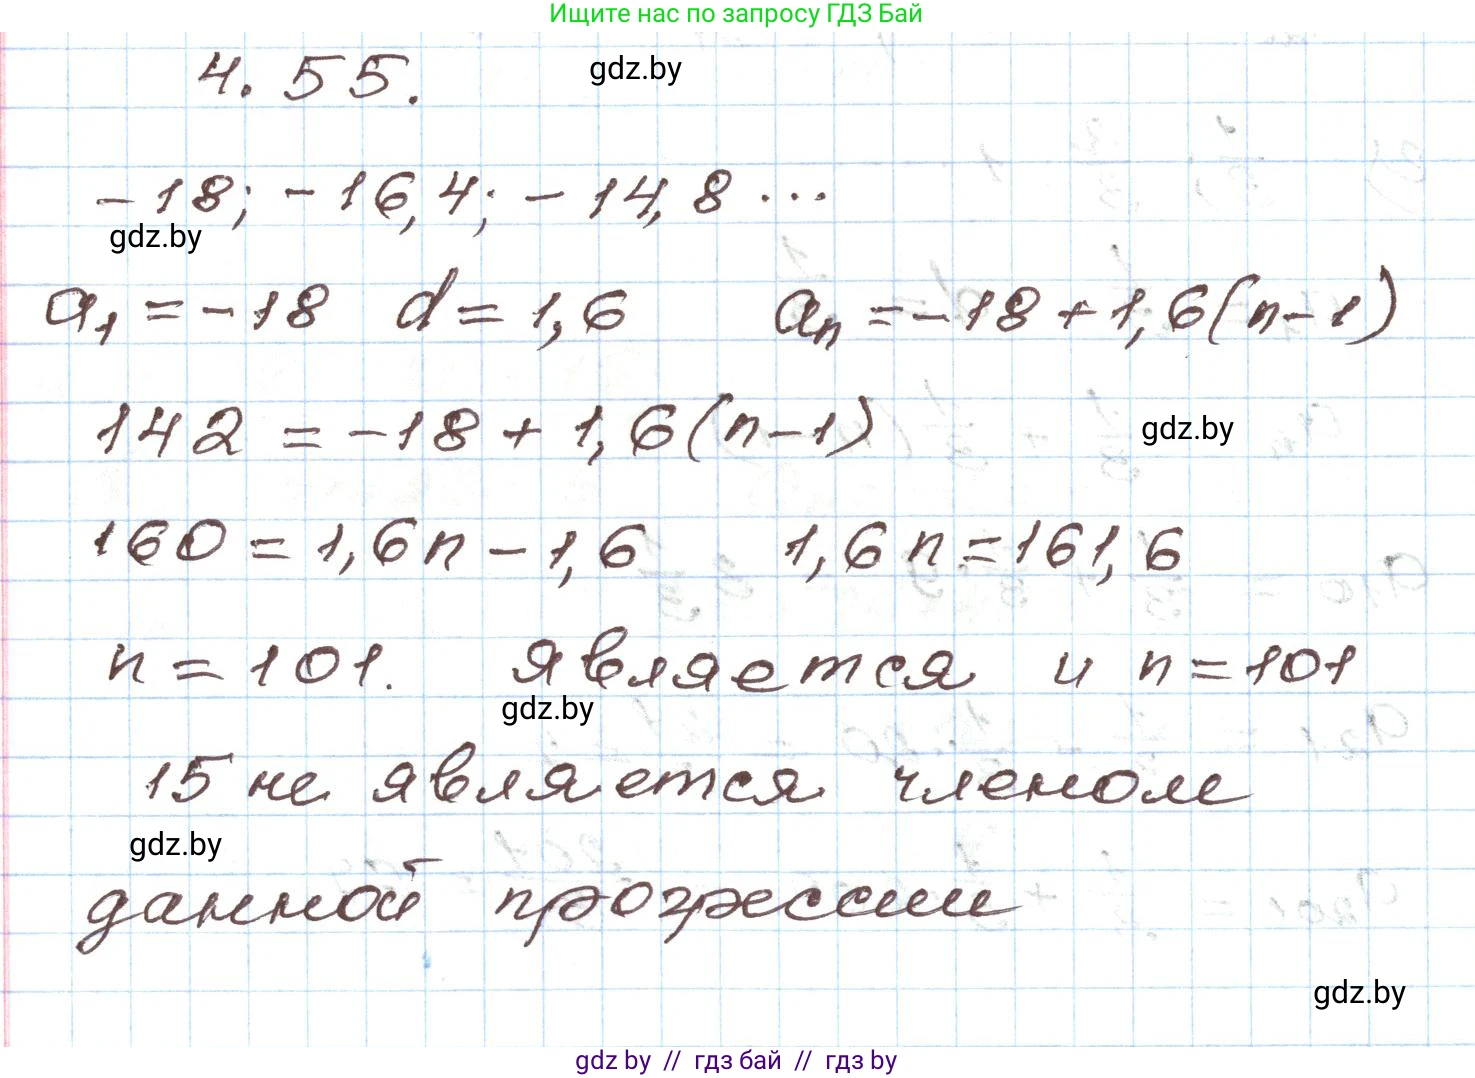 Ищите нас по запросу ГДЗ Бай
4.55.
gdz.by
-18; -16,4; -14,8 ...
gdz.by
a₁ = -18 d = 1,6 aₙ = -18 + 1,6(n-1)
142 = -18 + 1,6(n-1)
gdz.by
160 = 1,6n - 1,6 1,6n = 161,6
n = 101. является и n = 101
gdz.by
15 не является членом
gdz.by
данной прогрессии
gdz.by
gdz by // гдз бай // гдз by